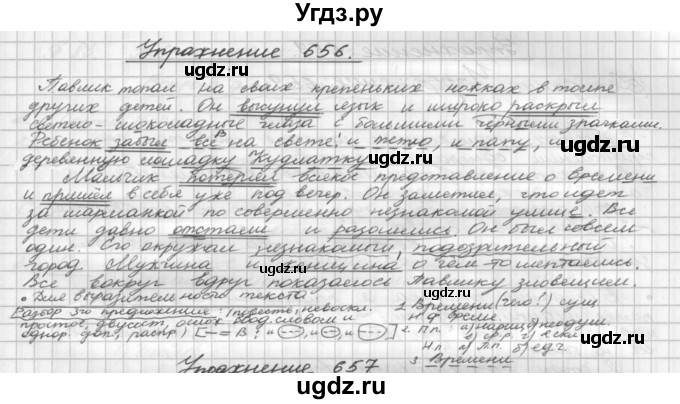 Угдз.ру
Упражнение 656.
Павлик топал на своих крепеньких ножках в толпе
других детей. Он высунул язык и широко раскрыл
светло-шоколадные глаза с большими чёрными зрачками.
Ребёнок забыл всё на свете: и тётю, и папу, и
деревянную лошадку Кудлатку.
Мальчик потерял всякое представление о времени
и пришёл в себя уже под вечер. Он заметил, что идёт
за шарманкой по совершенно незнакомой улице. Все
дети давно отстали и разошлись. Он был совсем
один. Его окружал незнакомый, подозрительный
город. Мужчина и женщина о чём-то шептались.
Всё вокруг вдруг показалось Павлику зловещим.
• Для выразительного текста
Разбор 3го предложения: (повеств, невоскл.
простое, двусост, ослож. ввод. словом и
однор. доп., распр.)
2. Времени (чего?) сущ
Н.ф. время.
2. П.п.: а) нариц, неодуш
Н.п. а) П.п. б) ед.ч
3. Времени
Упражнение 657
ugdz.ru
ugdz.ru
ugdz.ru
ugdz.ru
ugdz.ru
ugdz.ru
ugdz.ru
ugdz.ru
ugdz.ru
ugdz.ru
ugdz.ru